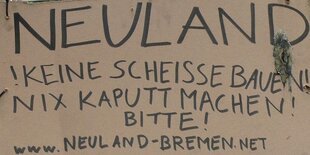 NEULAND
!KEINE SCHEISSE BAUEN!
NIX KAPUTT MACHEN!
BITTE!
www.NEULAND-BREMEN.NET